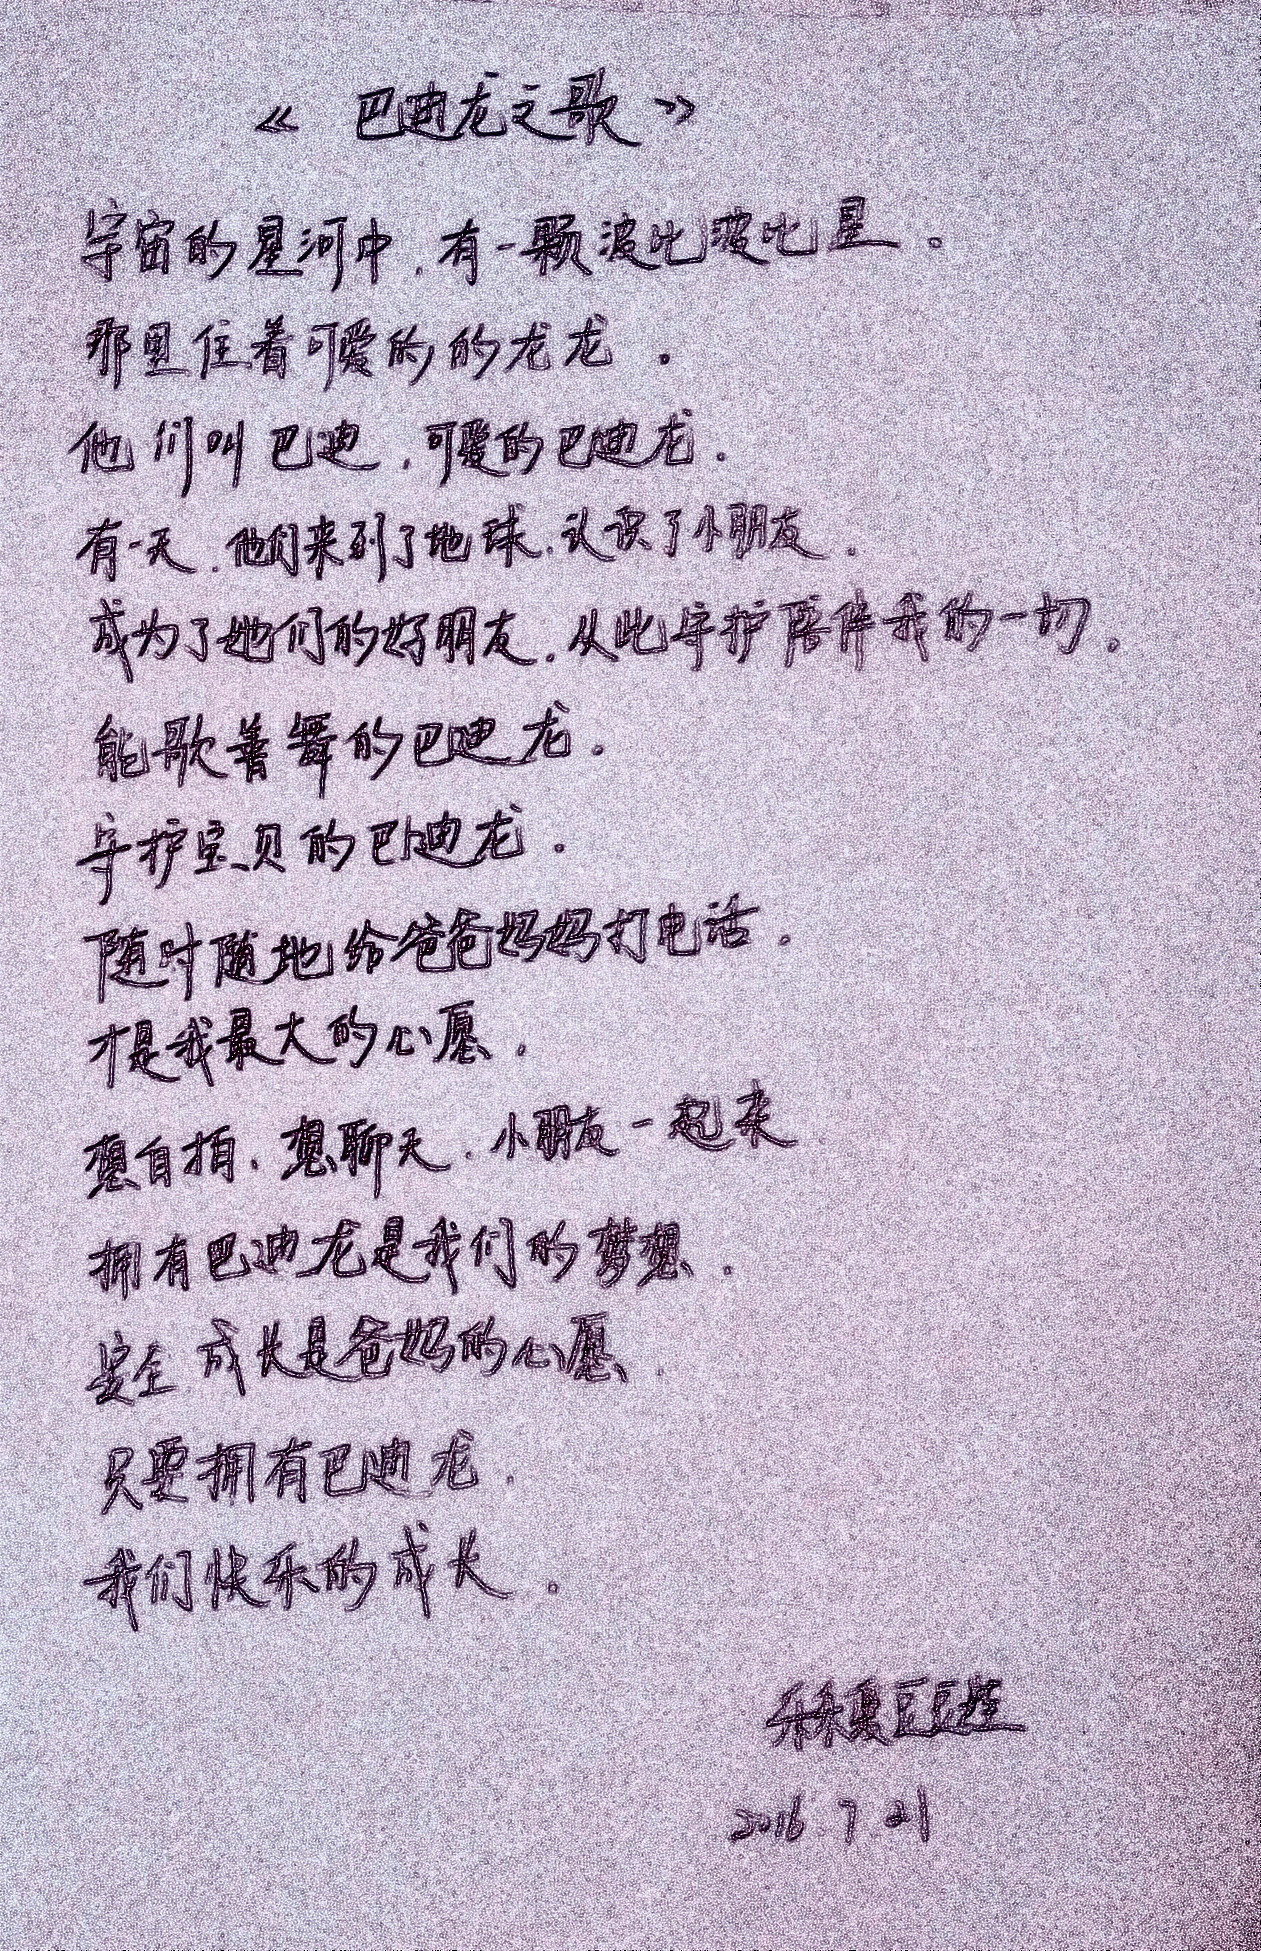 《巴迪龙之歌》
宇宙的星河中,有一颗波比波比星。
那里住着可爱的的龙龙.
他们叫巴迪,可爱的巴迪龙.
有一天.他们来到了地球.认识了小朋友.
成为了她们的好朋友.从此守护陪伴我的一切.
能歌善舞的巴迪龙.
守护宝贝的巴迪龙.
随时随地给爸爸妈妈打电话.
才是我最大的心愿.
想自拍.想聊天.小朋友一起来
拥有巴迪龙是我们的梦想.
安全成长是爸妈的心愿.
只要拥有巴迪龙.
我们快乐的成长.
2016.7.21